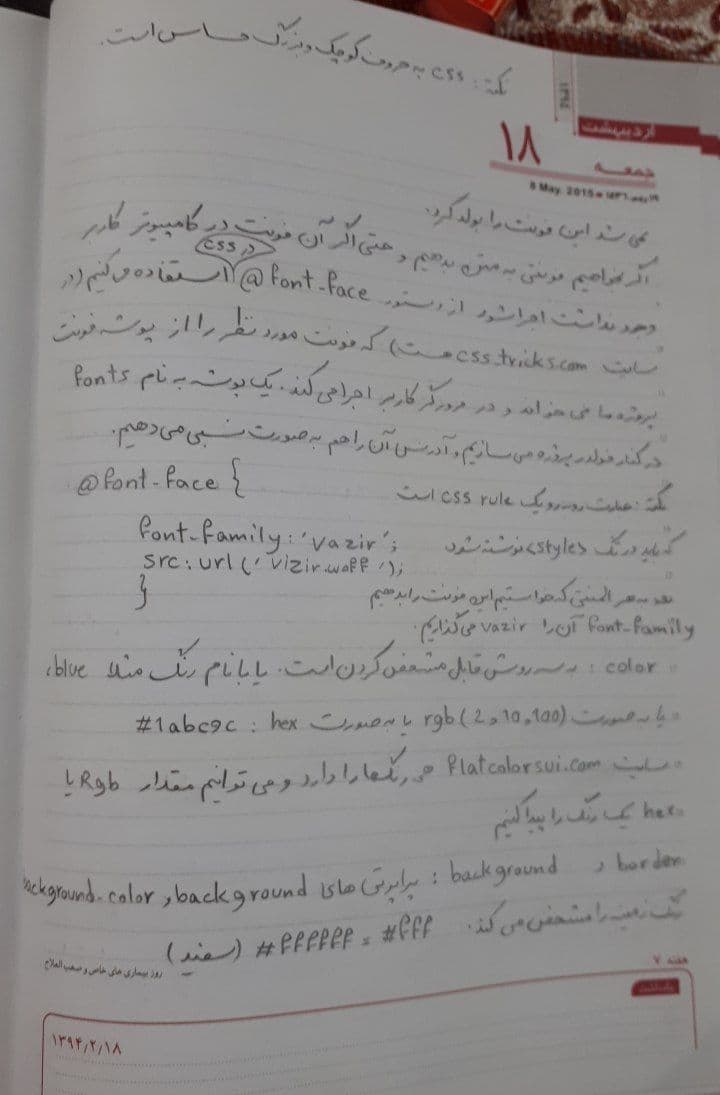 نکته : css به حروف کوچک و بزرگ حساس است.
۱۳۹۴
اردیبهشت
۱۸
جمعه
8 May. 2015
نمی شد این فونت را بولد کرد.
اگر بخواهیم فونتی به متن بدهیم و حتی اگر آن فونت در کامپیوتر کاربر
در css
وجود نداشت اجرا شود از دستور @font-face استفاده می کنیم (در
سایت css.tricks.com هست) که فونت مورد نظر را از پوشه فونت
پروژه ما می خواند و در مرورگر کاربر اجرا می کند. یک پوشه به نام fonts
در کنار فولدر پروژه می سازیم و آدرس آن را هم به صورت نسبی می دهیم.
نکته : عبارت روبه رو یک css rule است @font-face {
که باید در تگ <style> نوشته شود font-family: 'vazir';
src: url ('vizir.woff');
بعد به هر المنتی که خواستیم این فونت را بدهیم }
font-family آن را vazir می گذاریم.
color : به سه روش قابل مشخص کردن است. یا با نام رنگ مثلا blue،
یا به صورت rgb(2,10,100) یا به صورت hex : #1abc9c
سایت flatcolorsui.com هر رنگها را دارد و می توانیم مقدار Rgb یا
hex یک رنگ را پیدا کنیم
border و background : پراپرتی های background و background-color
رنگ زمینه را مشخص می کند. #fff = #ffffff (سفید)
روز بیماری های خاص و صعب العلاج
هفته ۷
یادداشت
۱۳۹۴/۲/۱۸